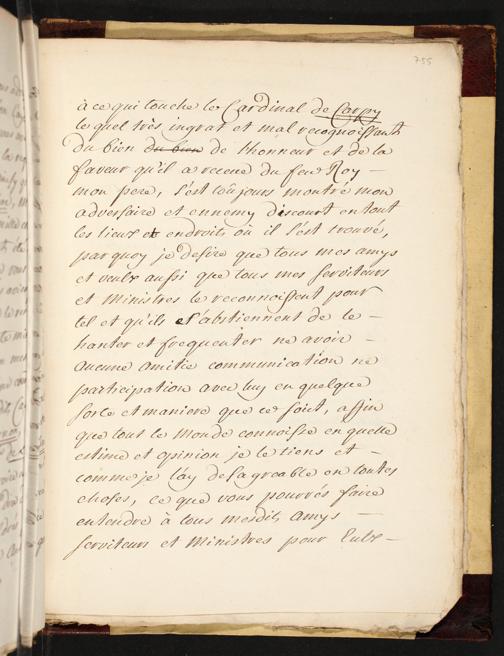 755
à ce qui touche le Cardinal de Carpy
lequel très ingrat et mal recognoissant
du bien du bien de l'honneur et de la
faveur qu'il a receue du feu Roy —
mon pere, s'est toujours montré mon
adversaire et ennemy discourt en tout
les lieux et endroits où il s'est trouvé,
parquoy je desire que tous mes amys
et veulx aussi que tous mes serviteurs
et Ministres le reconnoissent pour
tel et qu'ils s'abstiennent de le —
hanter et frequenter ne avoir —
aucune amitié communication ne
participation avec luy en quelque
sorte et maniere que ce soit, affin
que tout le Monde connoisse en quelle
estime et opinion je le tiens et —
comme je l'ay desagreable en toutes
choses, ce que vous pourrés faire
entendre à tous mesdits Amys —
serviteurs et Ministres pour l'eulx —